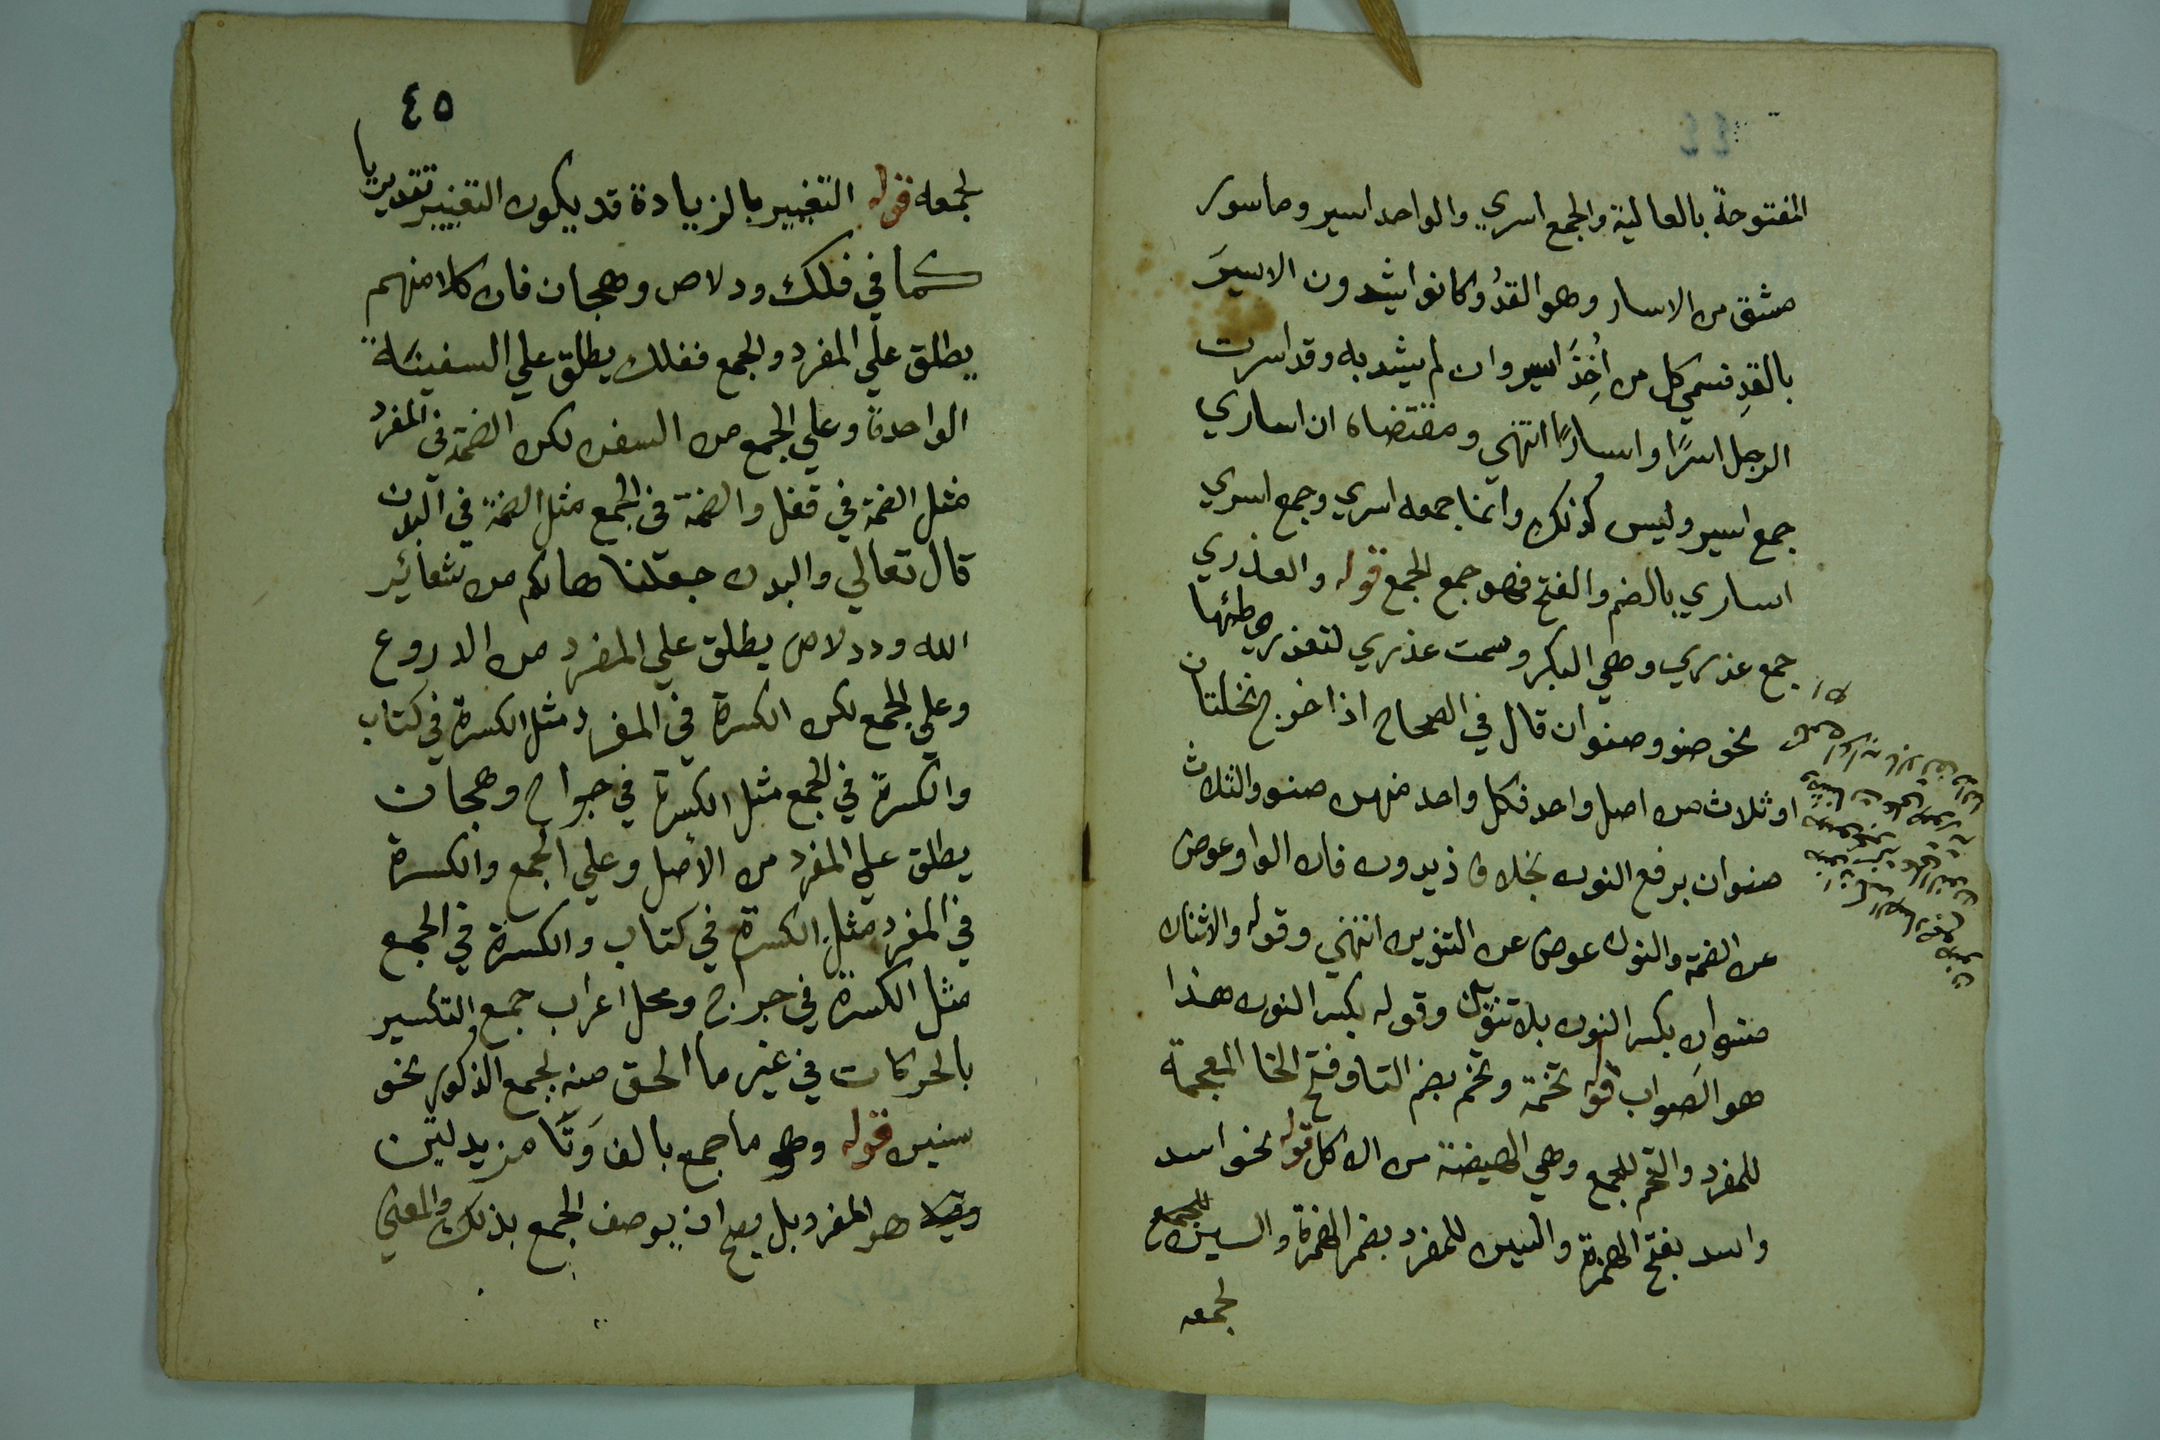 المفتوحة بالعالية والجمع اسري والواحد اسير وماسور
مشتق من الاسار وهو القدُ وكانوا يشدون الاسيرَ
بالقدِ فسمي كل من أُخِذَ اسير وان لم يشد به وقد اسرت
الرجل اسرًا واسارًا انتهي ومقتضاه ان اساري
جمع اسير وليس كذلك وانما جمعه اسري وجمع اسري
اساري بالضم والفتح فهو جمع الجمع قوله والعذري
جمع عذري وهي البكر وسمت عذري لتعذر وطئها
نحو صنو وصنوان قال في الصحاح اذا خرج نخلتان
او ثلاث من اصل واحد فكل واحد منهن صنو والثلاث
صنوان برفع النون بخلاف زيدون فان الواو عوض
عن الضمة والنون عوض عن التنوين انتهي وقوله والاثنان
صنوان بكسر النون بلا تنوين وقوله بكسر النون هذا
هو الصواب قوله تخمة وتخم بضم التا وفتح الخا المعجمة
للمفرد والتخم للجمع وهي الهيضة من الاكل قوله نحو اسد
واسد بفتح الهمزة والسين للمفرد بضم الهمزة والسين للجمع
لجمعه
٤٥
لجمعه قوله التغيير بالزيادة قد يكون التغيير تقديريا
كما في فلك ودلاص وهجان فان كلا منهم
يطلق علي المفرد والجمع ففلك يطلق علي السفينة
الواحدة وعلي الجمع من السفن لكن الضمة في المفرد
مثل الضمة في قفل والضمة في الجمع مثل الضمة في البدن
قال تعالي والبدن جعلنا هالكم من شعائير
الله وددلاص يطلق علي المفرد من الدروع
وعلي الجمع لكن الكسرة في المفرد مثل الكسرة في كتاب
والكسرة في الجمع مثل الكسرة في جراح وهجان
يطلق علي المفرد من الأصل وعلي الجمع والكسرة
في المفرد مثل الكسرة في كتاب والكسرة في الجمع
مثل الكسرة في جراح ومحل اعراب جمع التكسير
بالحركات في غير ما الحق منه لجمع الذكور نحو
سنين قوله وهو ما جمع بالف وَتَا مزيدتين
هو المفرد بل يصح ان يوصف الجمع بذلك والمعني